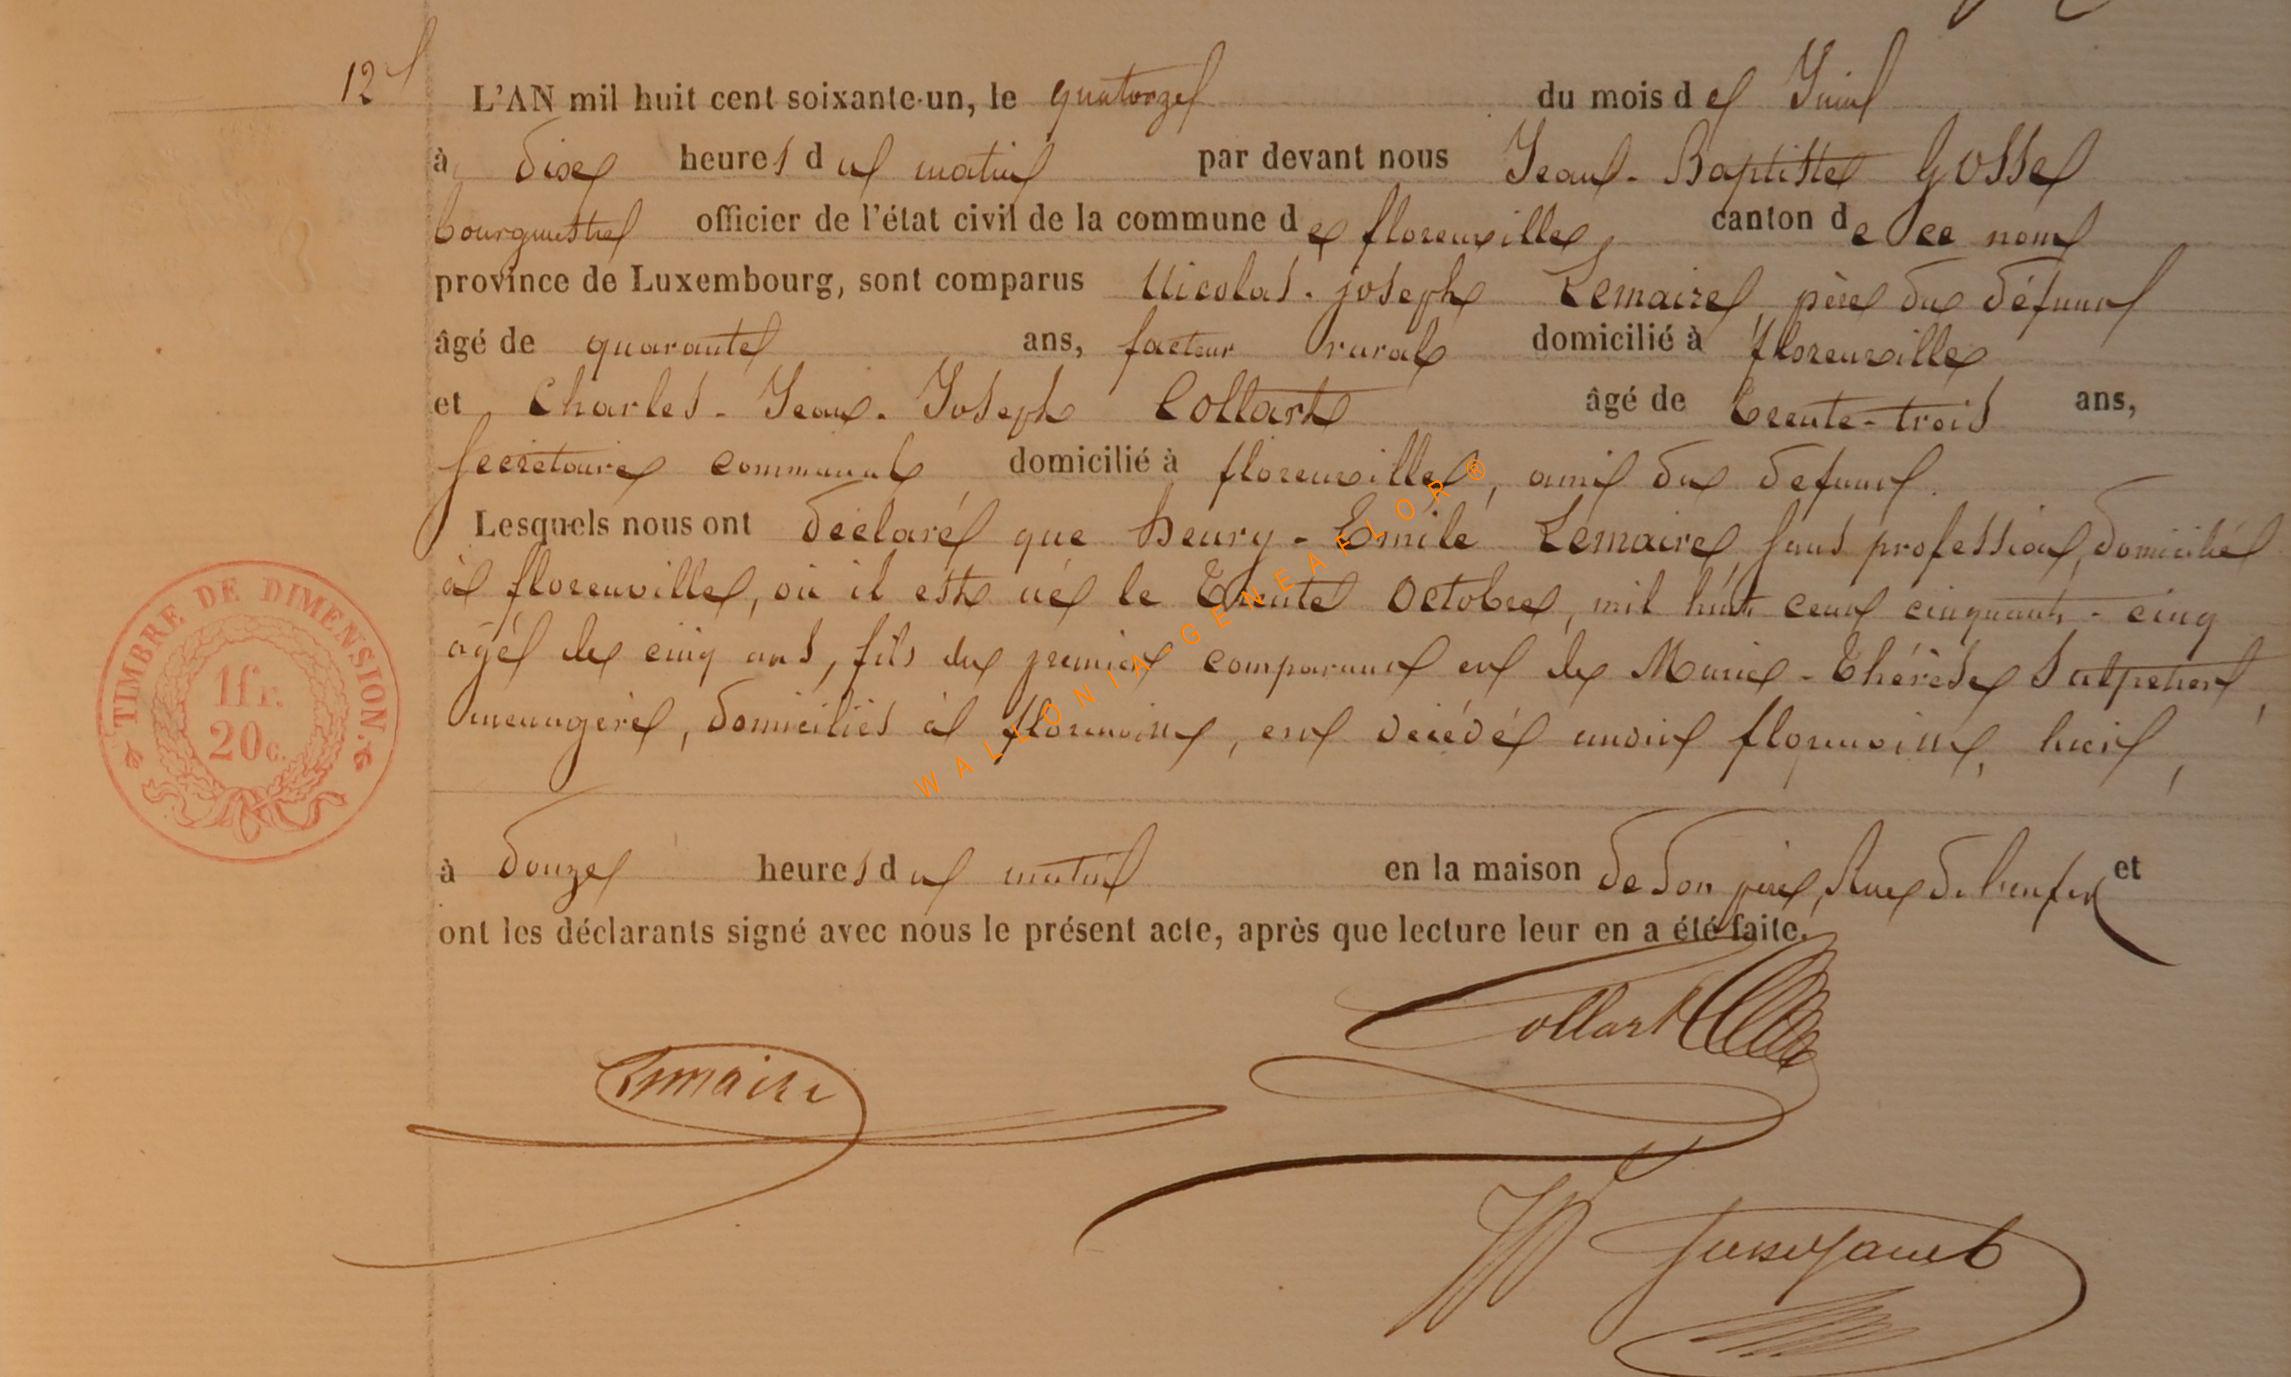 12e
L'AN mil huit cent soixante-un, le quatorze du mois de Juin
à dix heures du matin par devant nous Jean-Baptiste Gosse
bourgmestre officier de l'état civil de la commune de florenville, canton de ce nom
province de Luxembourg, sont comparus Nicolas-joseph Lemaire, père du défunt
âgé de quarante ans, facteur rural domicilié à florenville
et Charles-Jean-Joseph Collart âgé de trente-trois ans,
secrétaire communal domicilié à florenville, ami du défunt.
Lesquels nous ont déclaré que henry-Emile Lemaire, sans profession, domicilié
à florenville, où il est né le trente Octobre, mil huit cent cinquante-cinq
âgé de cinq ans, fils du premier comparant et de Marie-Thérèse Salpeter,
menagère, domiciliés à florenville, est décédé audit florenville, hier,
à douze heures du matin en la maison de son père, Rue de l'enfer et
ont les déclarants signé avec nous le présent acte, après que lecture leur en a été faite.
TIMBRE DE DIMENSION.
1 fr.
20 c.
Collart
Lemaire
WALLONIA-GENEAFLOR®